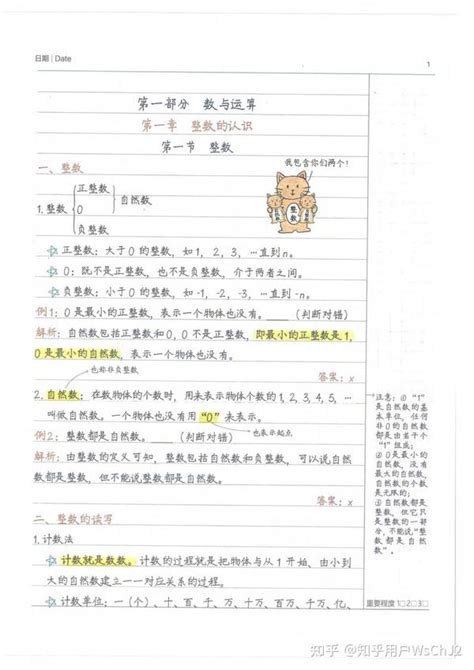 日期 | Date
1
第一部分 数与运算
第一章 整数的认识
第一节 整数
一、整数
我包含你们两个!
正整数
1.整数 0 自然数
负整数
整数
☆ 正整数:大于0的整数,如1,2,3,…直到n。
☆ 0:既不是正整数,也不是负整数,介于两者之间。
☆ 负整数:小于0的整数,如-1,-2,-3,…直到-n。
例1:0是最小的正整数,表示一个物体也没有。____(判断对错)
解析:自然数包括正整数和0,0不是正整数,即最小的正整数是1,
0是最小的自然数,表示一个物体也没有。
答案:×
也称非负整数
2.自然数:在数物体的个数时,用来表示物体个数的1,2,3,4,5,…
叫做自然数。一个物体也没有用“0”来表示。
也表示起点
例2:整数都是自然数。____(判断对错)
解析:由整数的意义可知,整数包括自然数和负整数,可以说自然
数是整数,但不能说整数是自然数。
答案:×
二、整数的读写
1.计数法
☆ 计数就是数数。计数的过程就是把物体与从1开始、由小到
大的自然数建立一一对应关系的过程。
☆ 计数单位:一(个)、十、百、千、万、十万、百万、千万、亿、
注意:①“1”
是自然数的基
本单位,任何
非0的自然数
都是由若干个
“1”组成;
②0是最小的
自然数,没有
最大的自然数,
自然数的个数
是无限的;
③自然数都是
整数,但它只
是整数的一部
分,不能说“整
数都是自然
数”。
重要程度 1□2□3□
知乎 @知乎用户WsChJ2